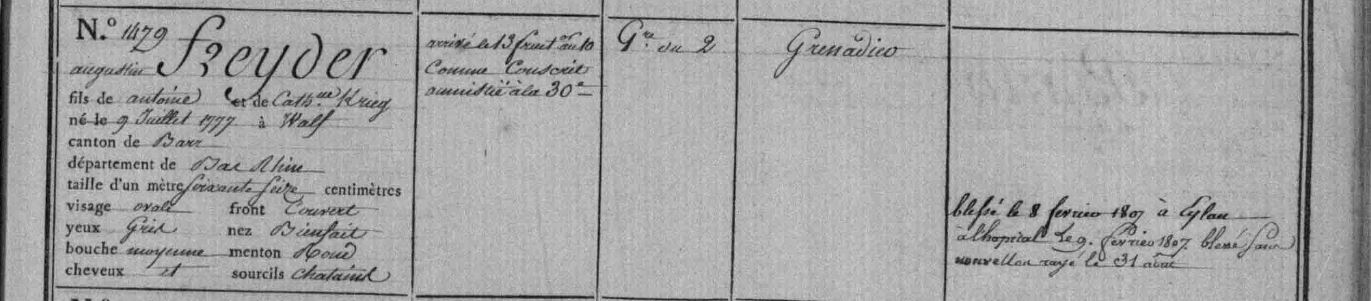 N.º 1479 Freyder
augustin
fils de antoine et de Cath.ne Krieg
né le 9 Juillet 1777 à Walf
canton de Barr
département de Bas Rhin
taille d'un mètre soixante seize centimètres
visage ovale front Couvert
yeux Gris nez Bienfait
bouche moyenne menton Rond
cheveux et sourcils chatains
arrivé le 13 fruct.or an 10
Comme Conscrit
amnistié à la 30e
G.re du 2
Grenadier
blessé le 8 fevrier 1807 à Eylau
à l'hopital le 9. fevrier 1807 blessé sans
nouvelles rayé le 31